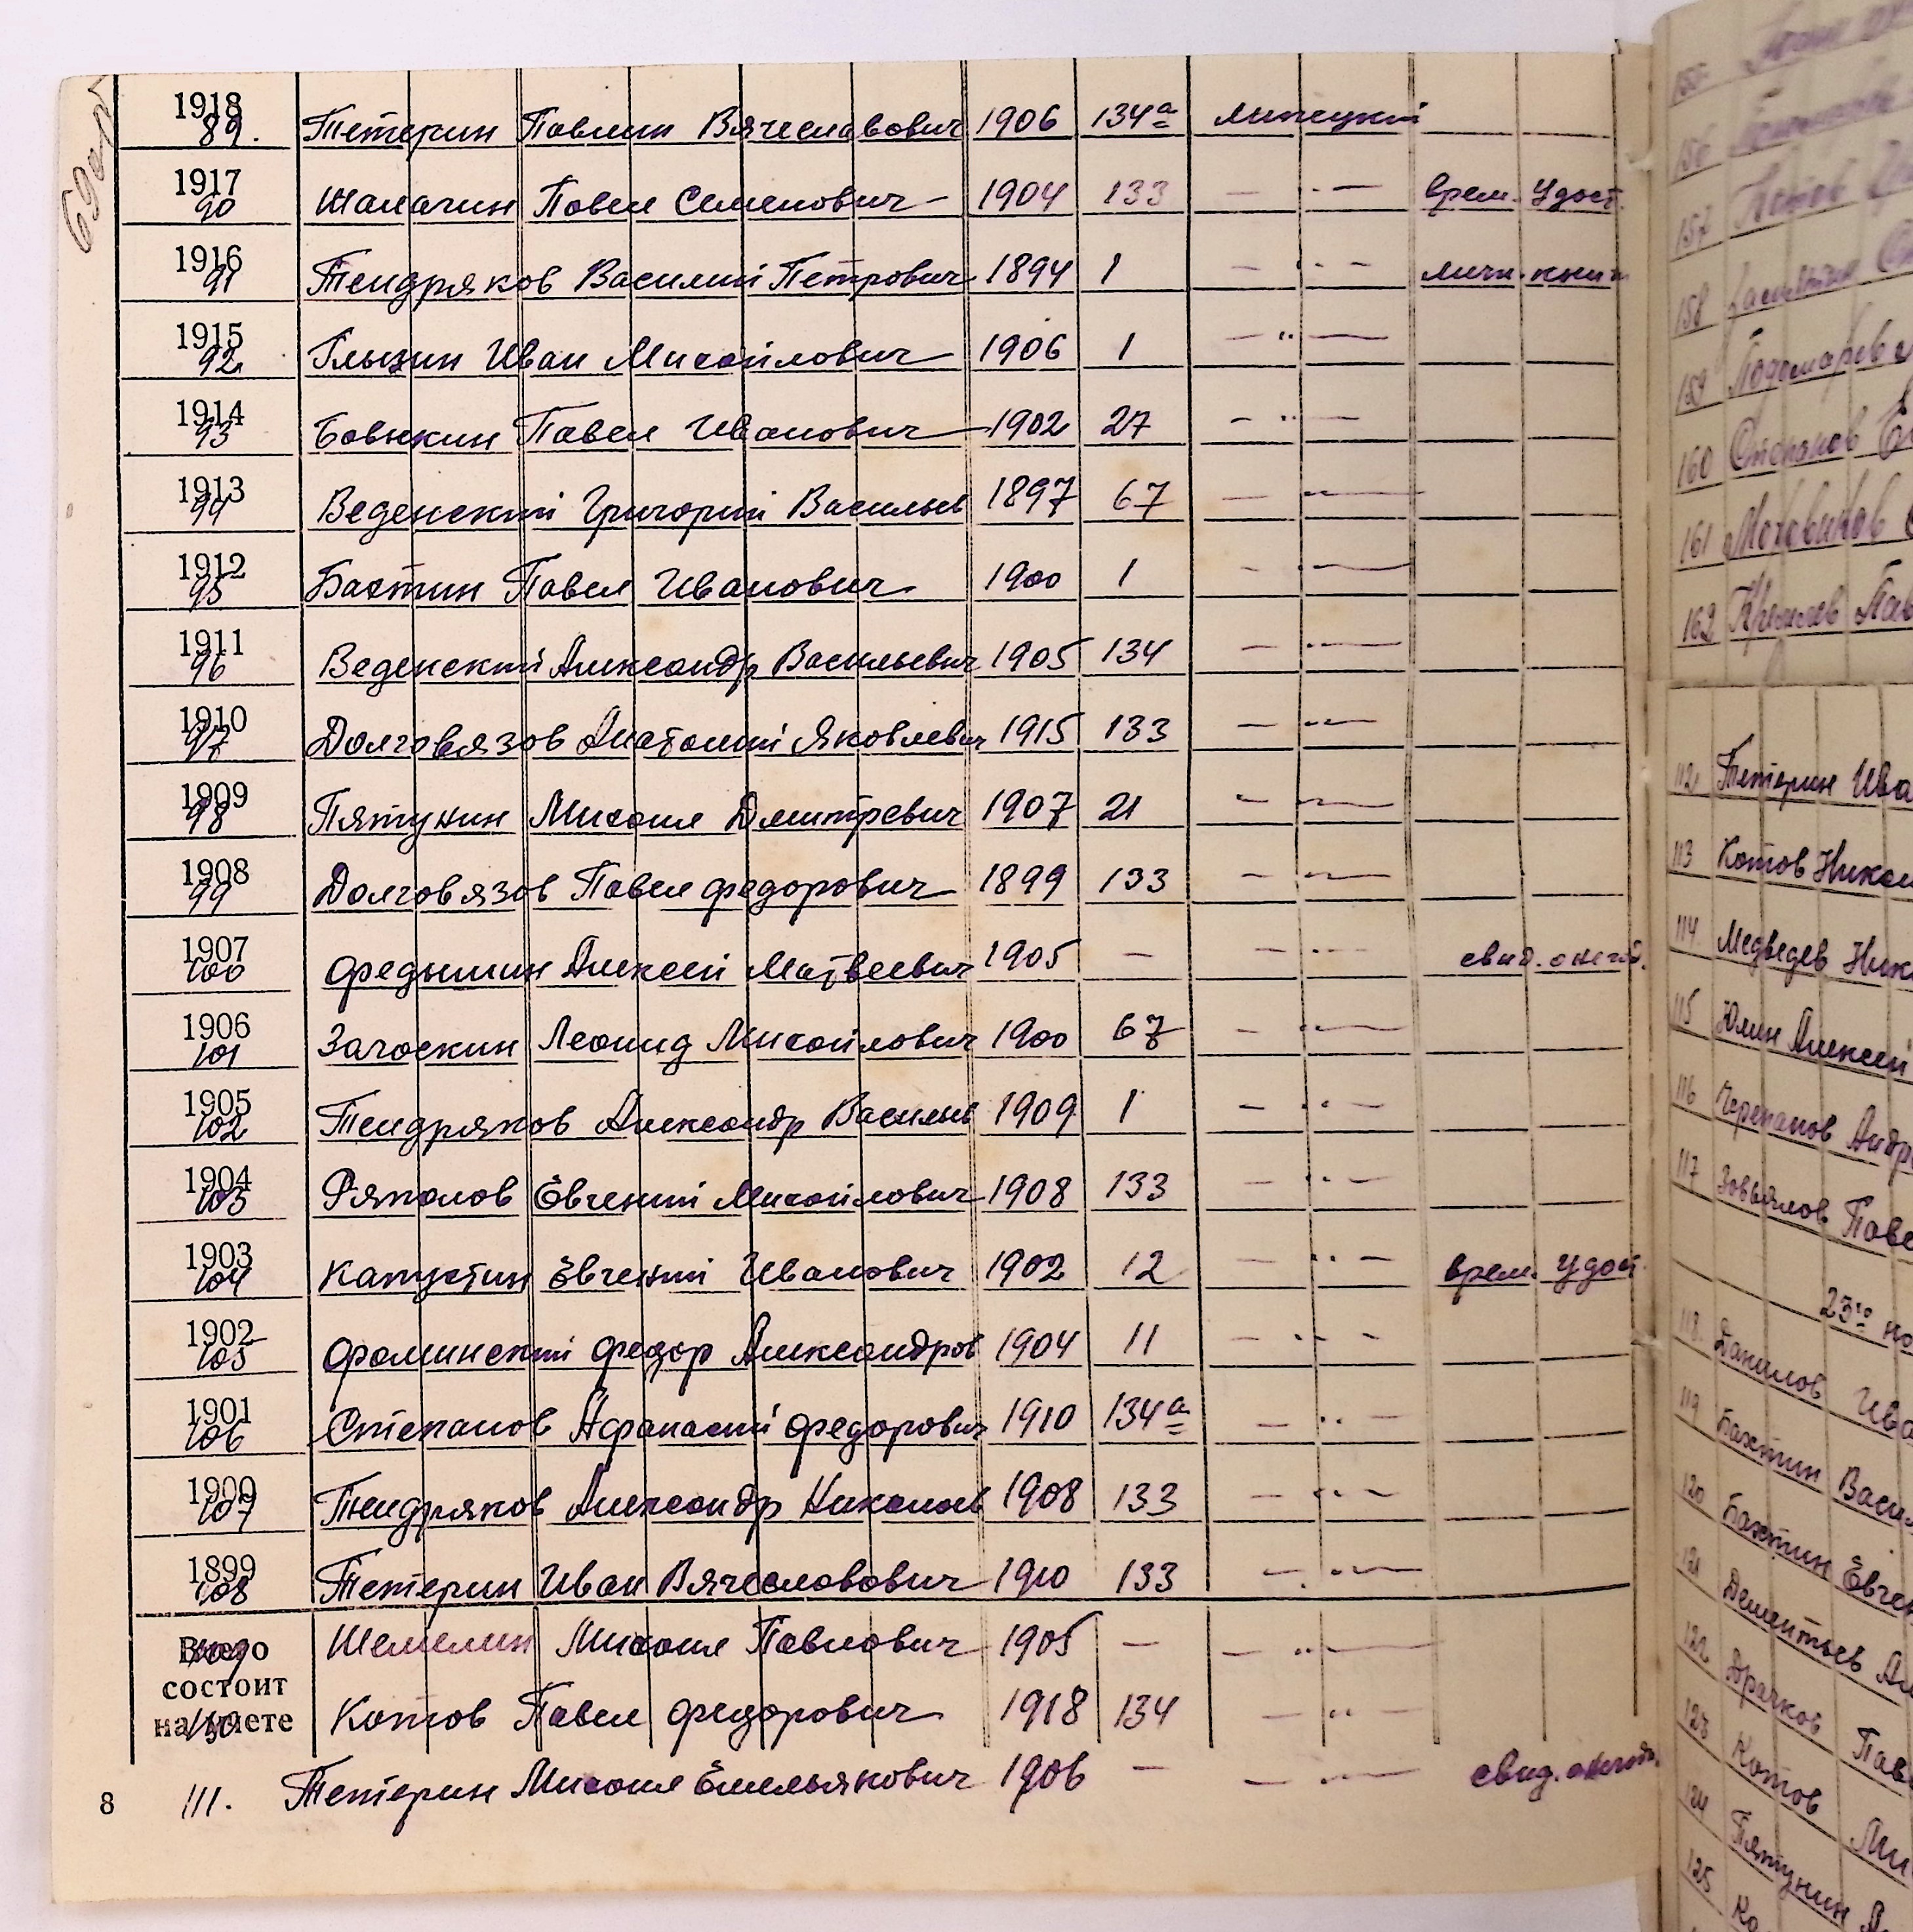 1918
89. Тетерин Павлин Вячеславович 1906 134а Липецкий
1917
90 Шалагин Павел Семенович 1904 133 — " — врем. удост.
1916
91 Тендряков Василий Петрович 1894 1 — " — личн. книж
1915
92 Глызин Иван Михайлович 1906 1 — " —
1914
93 Бовыкин Павел Иванович 1902 27 — " —
1913
94 Веденский Григорий Васильев 1897 67 — " —
1912
95 Бахтин Павел Иванович 1900 1 — " —
1911
96 Веденский Александр Васильевич 1905 134 — " —
1910
97 Долговязов Анатолий Яковлевич 1915 133 — " —
1909
98 Пятунин Михаил Дмитревич 1907 21 — " —
1908
99 Долговязов Павел Федорович 1899 133 — " —
1907
100 Федышин Алексей Матвеевич 1905 — — " — свид.
1906
101 Загоскин Леонид Михайлович 1900 67 — " —
1905
102 Тендряков Александр Васильев 1909 1 — " —
1904
103 Ряполов Евгений Михайлович 1908 133 — " —
1903
104 Капустин Евгений Иванович 1902 12 — " — врем. удост.
1902
105 Фоминский Федор Александров 1904 11 — " —
1901
106 Степанов Афанасий Федорович 1910 134а — " —
1900
107 Тендряков Александр Николаев 1908 133 — " —
1899
108 Тетерин Иван Вячеславович 1910 133 — " —
Всего
109 Шемелин Михаил Павлович 1905 — — " —
состоит
на учете
110 Котов Павел Федорович 1918 134 — " —
8 111. Тетерин Михаил Емельянович 1906 — — " — свид.
158
159 Пономарев
160 Степанов
161
162
112 Тетерин Ива
113 Котов Никол
114 Медведев Ник
115 Юлин Алексей
116 Черепанов Андр
117 Завьялов Паве
118. Данилов Ива
119 Бахтин Васил
120 Бахтин Евген
121 Дементьев Ал
122 Драчков Пав
123 Котов Ми
124 Пятунин
125 Ко